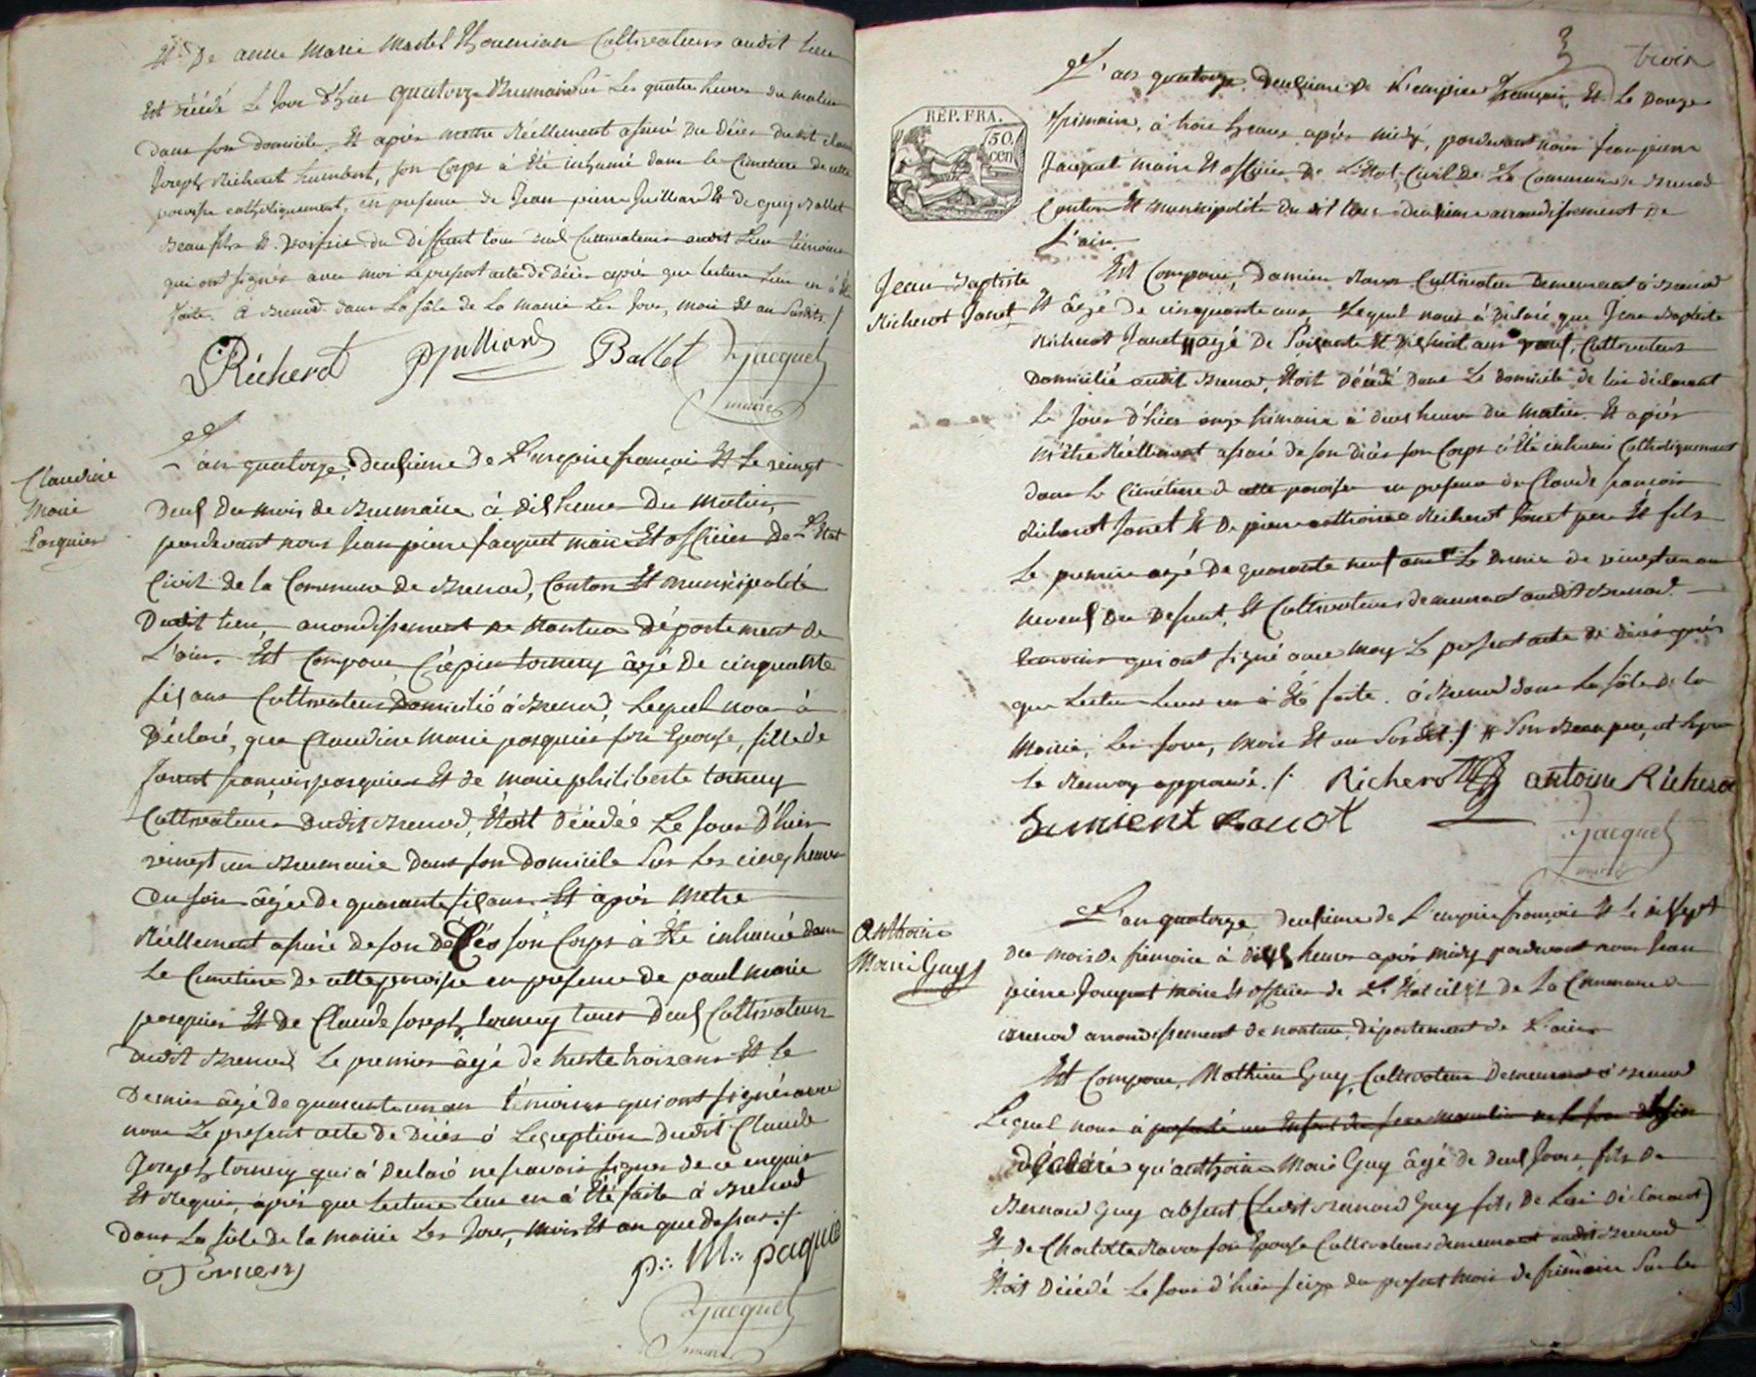 Et De anne Marie Martel Cultivateurs audit lieu
Est décédé Le Jour d'hier quatorze Brumaire Sur Les quatre heures du matin
dans son domicile. Et après m'etre Réellement assuré Du Décès dudit
Joseph Richerot humbert, son Corps à Eté inhumé dans le Cimetiere de cette
paroisse catholiquement, en presence de Jean pierre Juilliard Et de guy Ballet
Beau fils Et Voisin du Deffunt tous deux Cultivateurs audit Lieu témoins
qui ont signés avec moi Le present acte de Décès après que lecture Leur en à Eté
faite. à Brenod dans La Sâle de La mairie Les Jour, mois Et an Susdits ./
Richerot pjulliard Ballet Jacquet
maire
L'an quatorze, Deuxieme De L'empire françois Et Le vingt
Deux Du mois de Brumaire à dix heures Du Matin,
pardevant nous Jean pierre Jacquet maire Et officier De L'Etat
Civil de la Commune de Brenod, Canton Et municipalité
Dudit lieu, arrondissement de Nantua Département de
L'ain. Est Comparu Crépin tornery âgé de cinquante
six ans Cultivateur Domicilié à Brenod, Lequel nous à
Déclaré, que Claudine Marie pasquier son Epouse, fille de
françois pasquier Et de marie philiberte tornery
Cultivateurs Dudit Brenod, Etoit Décédée Le Jour D'hier
vingt un Brumaire Dans son Domicile Sur Les cinq heures
Du soir âgée de quarante six ans Et après M'etre
Réellement assuré de son Décés son Corps à Eté inhumé dans
Le Cimetiere de cette paroisse en presence de paul marie
pasquier Et De Claude Joseph tornery tous Deux Cultivateurs
audit Brenod Le premier âgé de trente trois ans Et le
Dernier âgé de quarante un an témoins qui ont signé avec
nous Le present acte de Décès à L'exception Dudit Claude
Joseph tornery qui à Declaré ne scavoir signer de ce enquis
Et Requis, après que Lecture Leur en à Eté faite à Brenod
Dans La Sâle de la mairie Les Jour, Mois Et an que Dessus ./
C Tornery p∴ M∴ paquié
Jacquet
maire
Claudine
Marie
Pasquier
3 trois
L'an quatorze Deuxieme De L'empire françois, Et Le Douze
frimaire, à trois heures après midy, pardevant nous Jean pierre
Jacquet maire Et officier De L'Etat Civil De La Commune de Brenod
Canton Et municipalité Dudit lieu Deuxieme arrondissement De
L'ain.
RÉP. FRA.
50
cen
Jean Baptiste
Richerot Janet
Est Comparu, Damien Ravot Cultivateur Demeurant à Brenod
Et âgé De cinquante ans, Lequel nous à Déclaré que Jean Baptiste
Richerot Janet # agé De Soixante Et Dixhuit ans, Cultivateur
Domicilié audit Brenod, Etoit Décédé Dans Le domicile de lui déclarant
Le Jour d'hier onze frimaire à deux heures du matin. Et après
m'être Réellement assuré de son décès son Corps à Eté inhumé Catholiquement
dans Le Cimetiere de cette paroisse en presence de Claude françois
Richerot Janet Et De pierre anthoine Richerot Janet pere Et fils
Le premier agé De quarante neuf ans Et Le Dernier de vingt un an
neveux Du Defunt, Et Cultivateurs demeurant audit Brenod
temoins qui ont signé avec moy Le present acte de décès après
que Lecture Leur en à Eté faite. à Brenod dans La Sâle De la
Mairie, Les Jour, mois Et an Susdit ./ # Son Beau pere, et
Le Renvoy approuvé. /. Richerot antoine Richerot
Damient Ravot
Jacquet
maire
Anthoine
Marie Guy
L'an quatorze Deuxieme de L'empire françois Et Le dixsept
du mois De frimaire à heures après midy pardevant nous Jean
pierre Jacquet maire Et officier de L'Etat civil de La Commune de
Brenod arrondissement de nantua, département de L'ain
Est Comparu, Mathieu Guy, Cultivateur Demeurant à Brenod
Lequel nous à presenté un Enfant du sexe masculin né le Jour d'hier
déclaré qu'anthoine Marie Guy âgé de deux Jours, fils De
Bernard Guy absent (Ledit Bernard Guy fils de Lui Déclarant)
Et De Charlotte Ravot son Epouse Cultivateurs demeurant audit Brenod
Etoit Décédé Le Jour d'hier seize du present mois de frimaire Sur Les